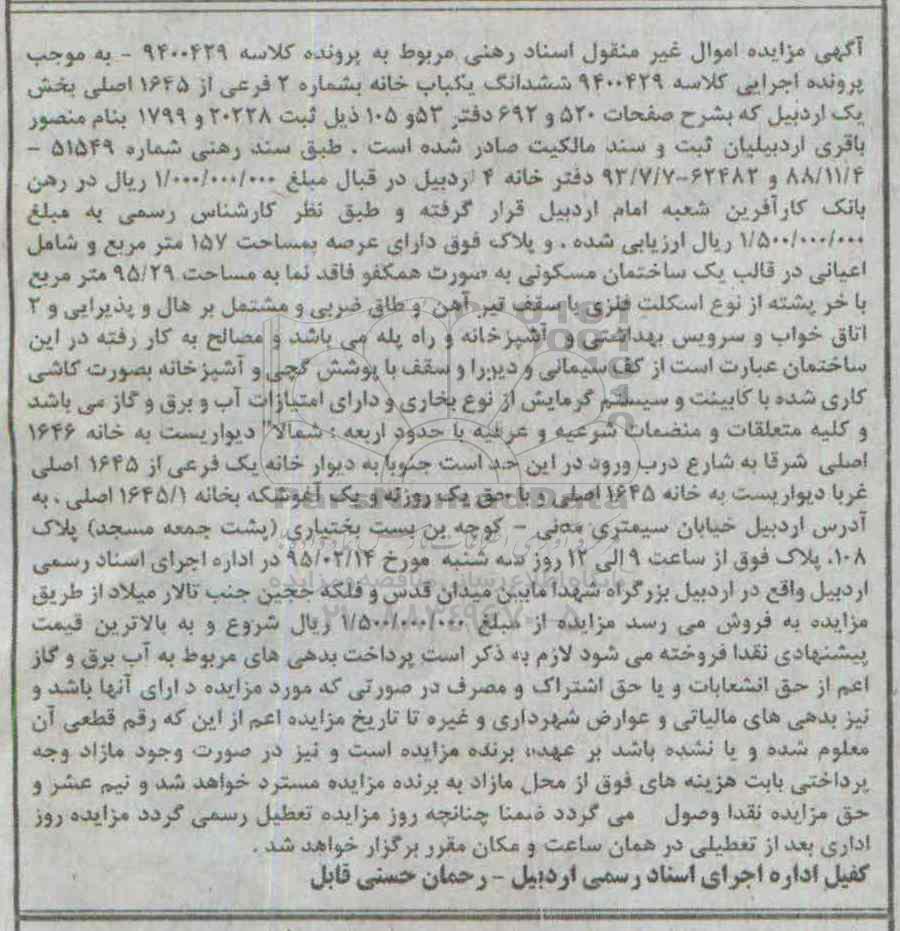 آگهی مزایده اموال غیر منقول اسناد رهنی مربوط به پرونده کلاسه ۹۴۰۰۴۲۹ - به موجب
پرونده اجرایی کلاسه ۹۴۰۰۴۲۹ ششدانگ یکباب خانه بشماره ۲ فرعی از ۱۶۴۵ اصلی بخش
یک اردبیل که بشرح صفحات ۵۲۰ و ۶۹۲ دفتر ۵۳ و ۱۰۵ ذیل ثبت ۲۰۲۲۸ و ۱۷۹۹ بنام منصور
باقری اردبیلیان ثبت و سند مالکیت صادر شده است . طبق سند رهنی شماره ۵۱۵۴۹ -
۸۸/۱۱/۴ و ۶۲۴۸۲-۹۳/۷/۷ دفتر خانه ۴ اردبیل در قبال مبلغ ۱/۰۰۰/۰۰۰/۰۰۰ ریال در رهن
بانک کارآفرین شعبه امام اردبیل قرار گرفته و طبق نظر کارشناس رسمی به مبلغ
۱/۵۰۰/۰۰۰/۰۰۰ ریال ارزیابی شده . و پلاک فوق دارای عرصه بمساحت ۱۵۷ متر مربع و شامل
اعیانی در قالب یک ساختمان مسکونی به صورت همکفو فاقد نما به مساحت ۹۵/۲۹ متر مربع
با خر پشته از نوع اسکلت فلزی با سقف تیر آهن و طاق ضربی و مشتمل بر هال و پذیرایی و ۲
اتاق خواب و سرویس بهداشتی و آشپزخانه و راه پله می باشد و مصالح به کار رفته در این
ساختمان عبارت است از کف سیمانی و دیورا و سقف با پوشش گچی و آشپزخانه بصورت کاشی
کاری شده با کابینت و سیستم گرمایش از نوع بخاری و دارای امتیازات آب و برق و گاز می باشد
و کلیه متعلقات و منضمات شرعیه و عرفیه با حدود اربعه : شمالا" دیواریست به خانه ۱۶۴۶
اصلی شرقا به شارع درب ورود در این حد است جنوبا به دیوار خانه یک فرعی از ۱۶۴۵ اصلی
غربا دیواریست به خانه ۱۶۴۵ اصلی و با حق یک روزنه و یک آغوشکه بخانه ۱۶۴۵/۱ اصلی . به
آدرس اردبیل خیابان سیمتری مدنی - کوچه بن بست بختیاری (پشت جمعه مسجد) پلاک
۱۰۸. پلاک فوق از ساعت ۹ الی ۱۲ روز سه شنبه مورخ ۹۵/۰۲/۱۴ در اداره اجرای اسناد رسمی
اردبیل واقع در اردبیل بزرگراه شهدا مابین میدان قدس و فلکه حجین جنب تالار میلاد از طریق
مزایده به فروش می رسد مزایده از مبلغ ۱/۵۰۰/۰۰۰/۰۰۰ ریال شروع و به بالاترین قیمت
پیشنهادی نقدا فروخته می شود لازم به ذکر است پرداخت بدهی های مربوط به آب برق و گاز
اعم از حق انشعابات و یا حق اشتراک و مصرف در صورتی که مورد مزایده دارای آنها باشد و
نیز بدهی های مالیاتی و عوارض شهرداری و غیره تا تاریخ مزایده اعم از این که رقم قطعی آن
معلوم شده و یا نشده باشد بر عهده برنده مزایده است و نیز در صورت وجود مازاد وجه
پرداختی بابت هزینه های فوق از محل مازاد به برنده مزایده مسترد خواهد شد و نیم عشر و
حق مزایده نقدا وصول می گردد ضمنا چنانچه روز مزایده تعطیل رسمی گردد مزایده روز
اداری بعد از تعطیلی در همان ساعت و مکان مقرر برگزار خواهد شد .
کفیل اداره اجرای اسناد رسمی اردبیل - رحمان حسنی قابل